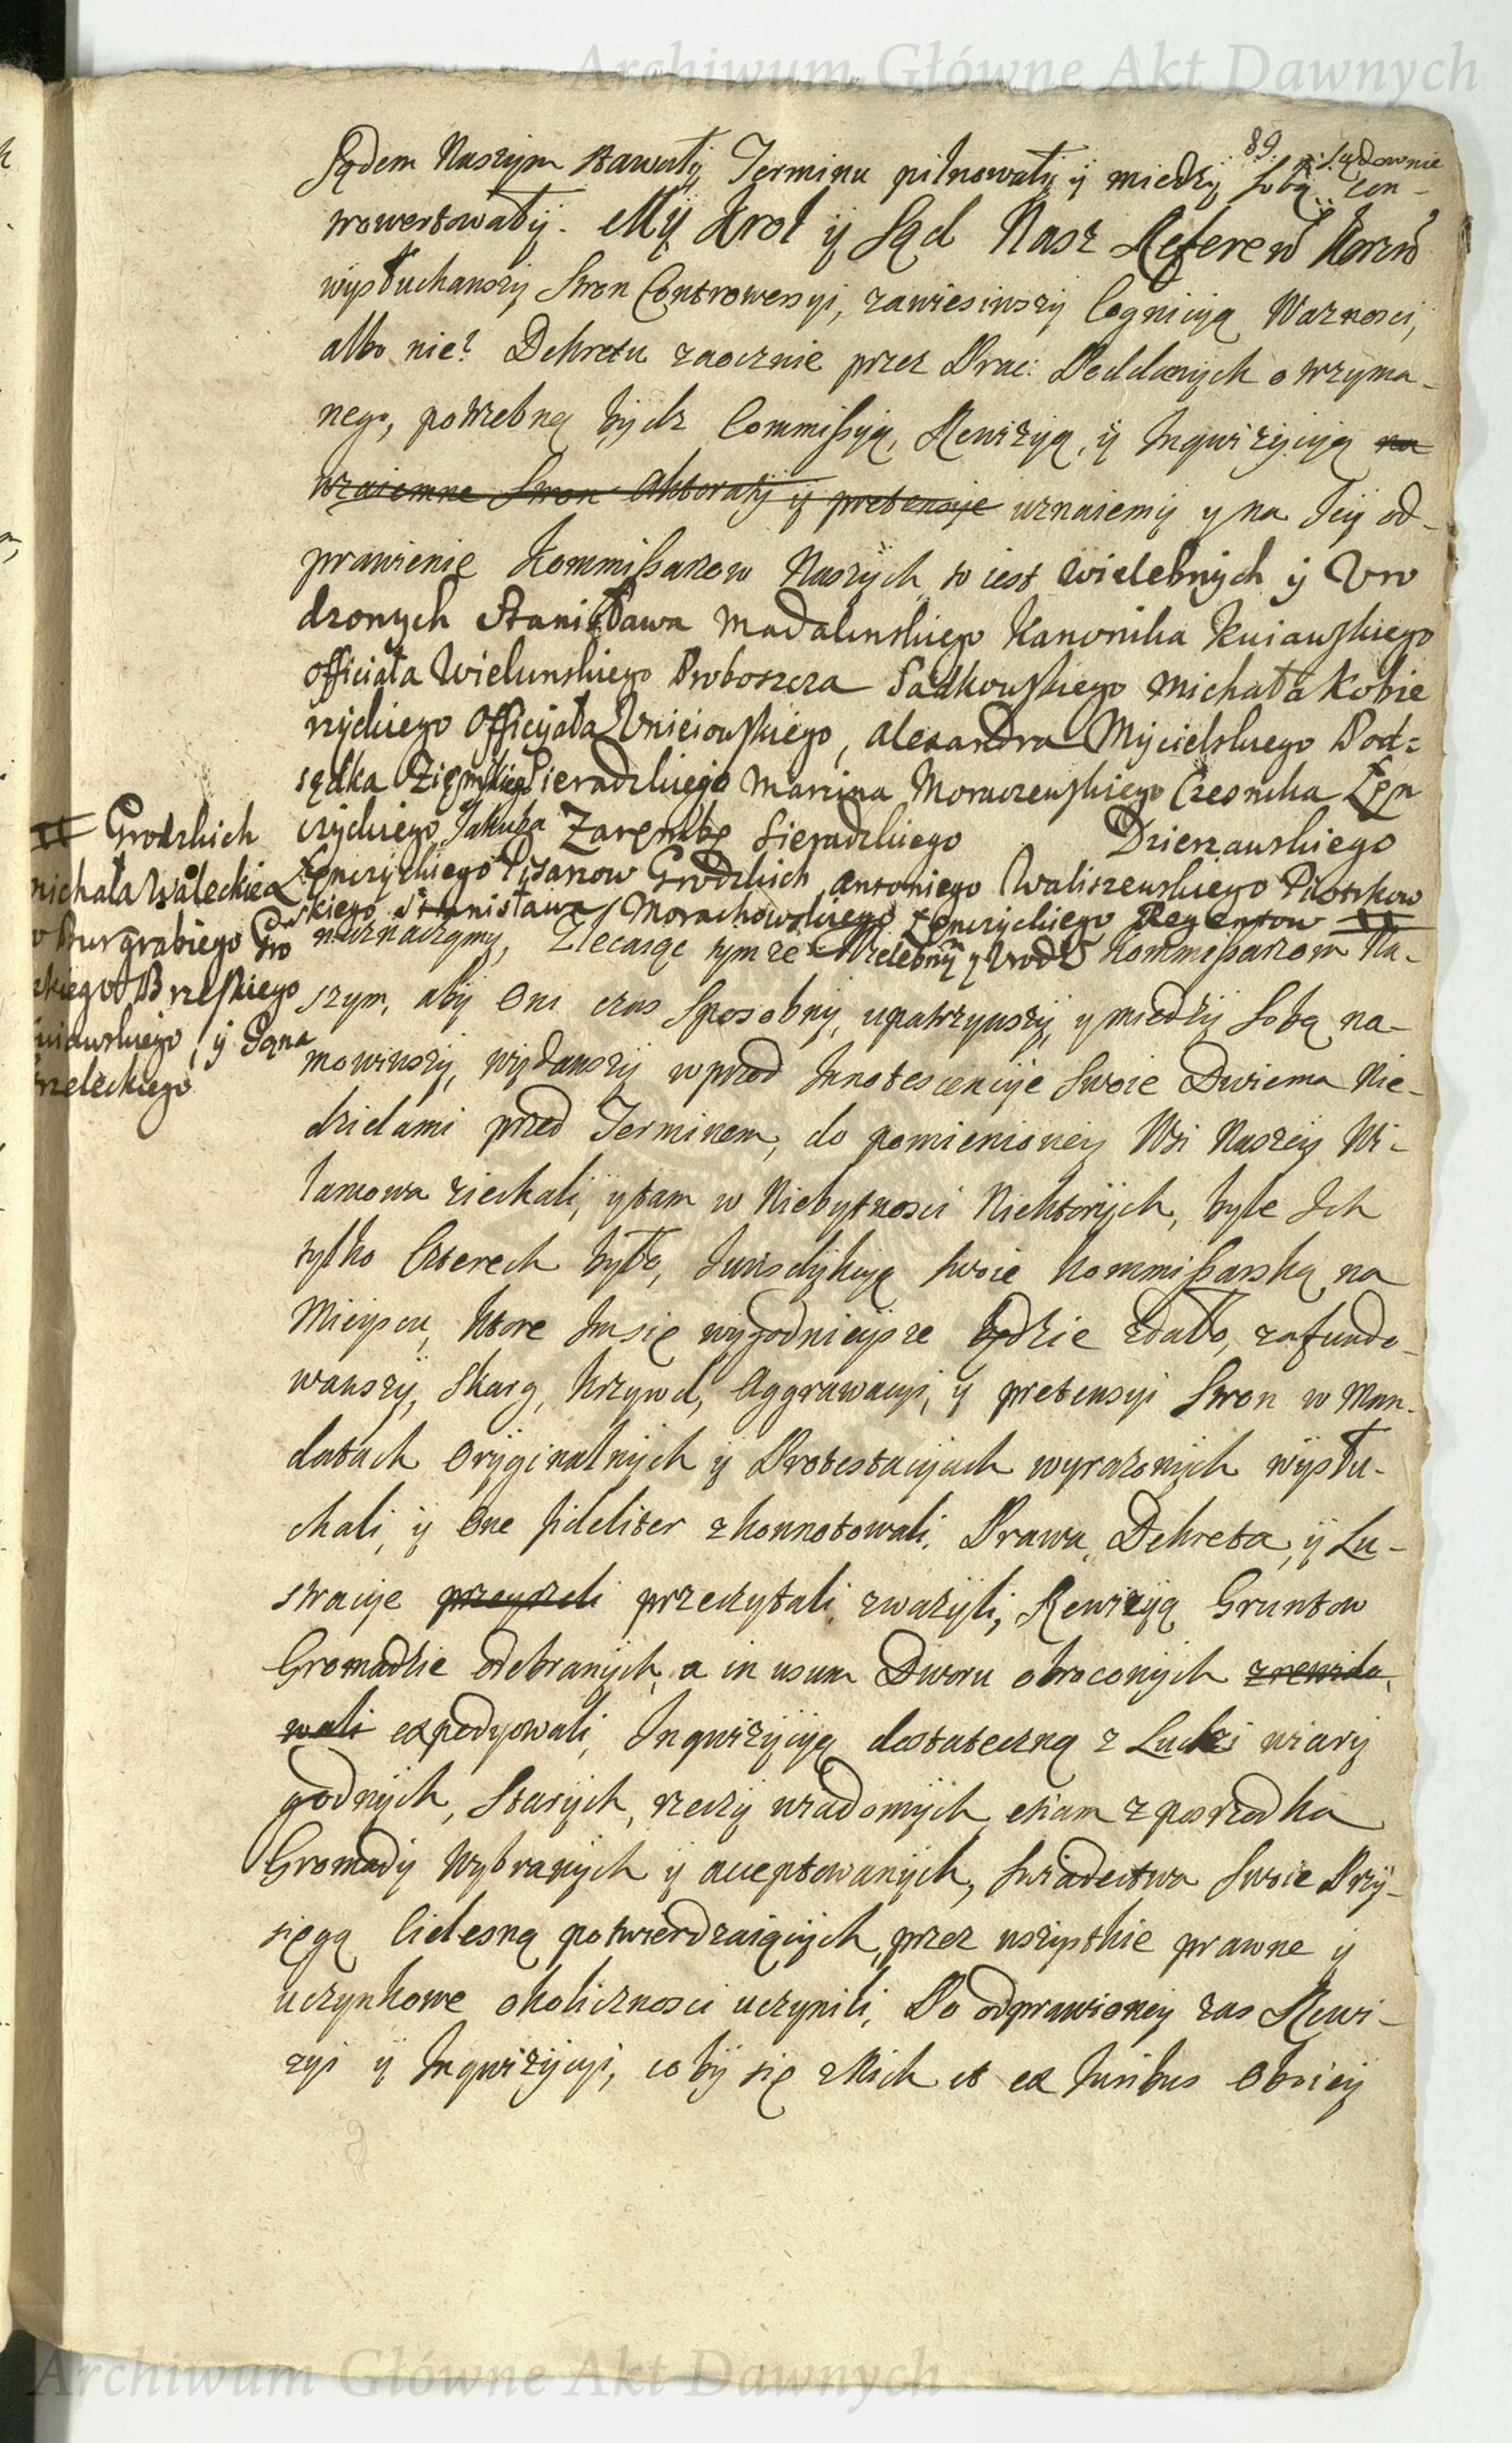 Archiwum Główne Akt Dawnych
89.
Sądem Naszym stawały, Terminu pilnowały y między Sobą Sądownie con-
trowertowały. My Krol y Sąd Nasz Referen Koron
wysłuchawszy Stron Controwersyi, zawiesiwszy Cognicyą Waznosci,
albo nie? Dekretu zaocznie przez Prac: Poddanych otrzyma-
nego, potrzebną bydz Commissyą, Rewizyą, y Inqwizycyą na
wzaiemne Stron Aktoraty y pretensyie uznaiemy y na Jey od-
prawienie Kommissarzow Naszych, to iest Wielebnych y Uro
dzonych Stanisława Madalinskiego Kanonika Kuiawskiego
Officiała Wielunskiego Proboszcza Sadkowskiego Michała Kobie
rzyckiego Officyała Unieiowskiego, Alexandra Mycielskiego Pod-
sędka Ziemskiego Sieradzkiego Marcina Moraczewskiego Czesnika Łęn
czyckiego, Jakuba Zarembę Sieradzkiego Dzierzawskiego
Łęnczyckiego Pisarzow Grodzkich, Antoniego Waliszewskiego Piotrkow
skiego, Stanisława Morachowskiego Łęnczyckiego Regentow
Grodzkich
Michała Wałeckie
Burgrabiego Gro
Brzeskiego
y Jana
naznaczamy, Zlecaiąc tymze Wielebnym y Urodz Kommissarzom Na-
szym, aby Oni czas Sposobny, upatrzywszy, y między Sobą na-
mowiwszy, wydawszy wprzod Innotescencyie Swoie Dwiema Nie-
dzielami przed Terminem, do pomienioney Wsi Naszey Wi-
lamowa ziechali, y tam w Niebytnosci Niektorych, byle Ich
tylko Czterech było, Jurisdykcyą Swoie Kommissarską na
Mieyscu, ktore Im się wygodnieysze będzie zdało, zafundo-
wawszy, Skarg, Krzywd, Aggrawacyi, y pretensyi Stron w Man-
datach Oryginalnych y Protestacyiach wyrazonych wysłu-
chali, y One fideliter zkonnotowali, Prawa, Dekreta, y Lu-
stracyie przeyrzeli przeczytali zwazyli, Rewizyą Gruntow
Gromadzie odebranych, a in usum Dworu obroconych zrewido-
wali expedyowali, Inqwizycyą dostateczną z Ludzi wiary
godnych, Starych, rzeczy wiadomych, etiam z posrzodka
Gromady Wybranych y acceptowanych, Swiadectwa Swoie Przy-
sięgą Cielesną potwierdzaiących, przez wszystkie prawne y
uczynkowe okolicznosci uczynili, Po odprawioney zas Rewi-
zyi y Inqwizycyi, coby się z Nich et ex Juribus Oboiey
Archiwum Główne Akt Dawnych